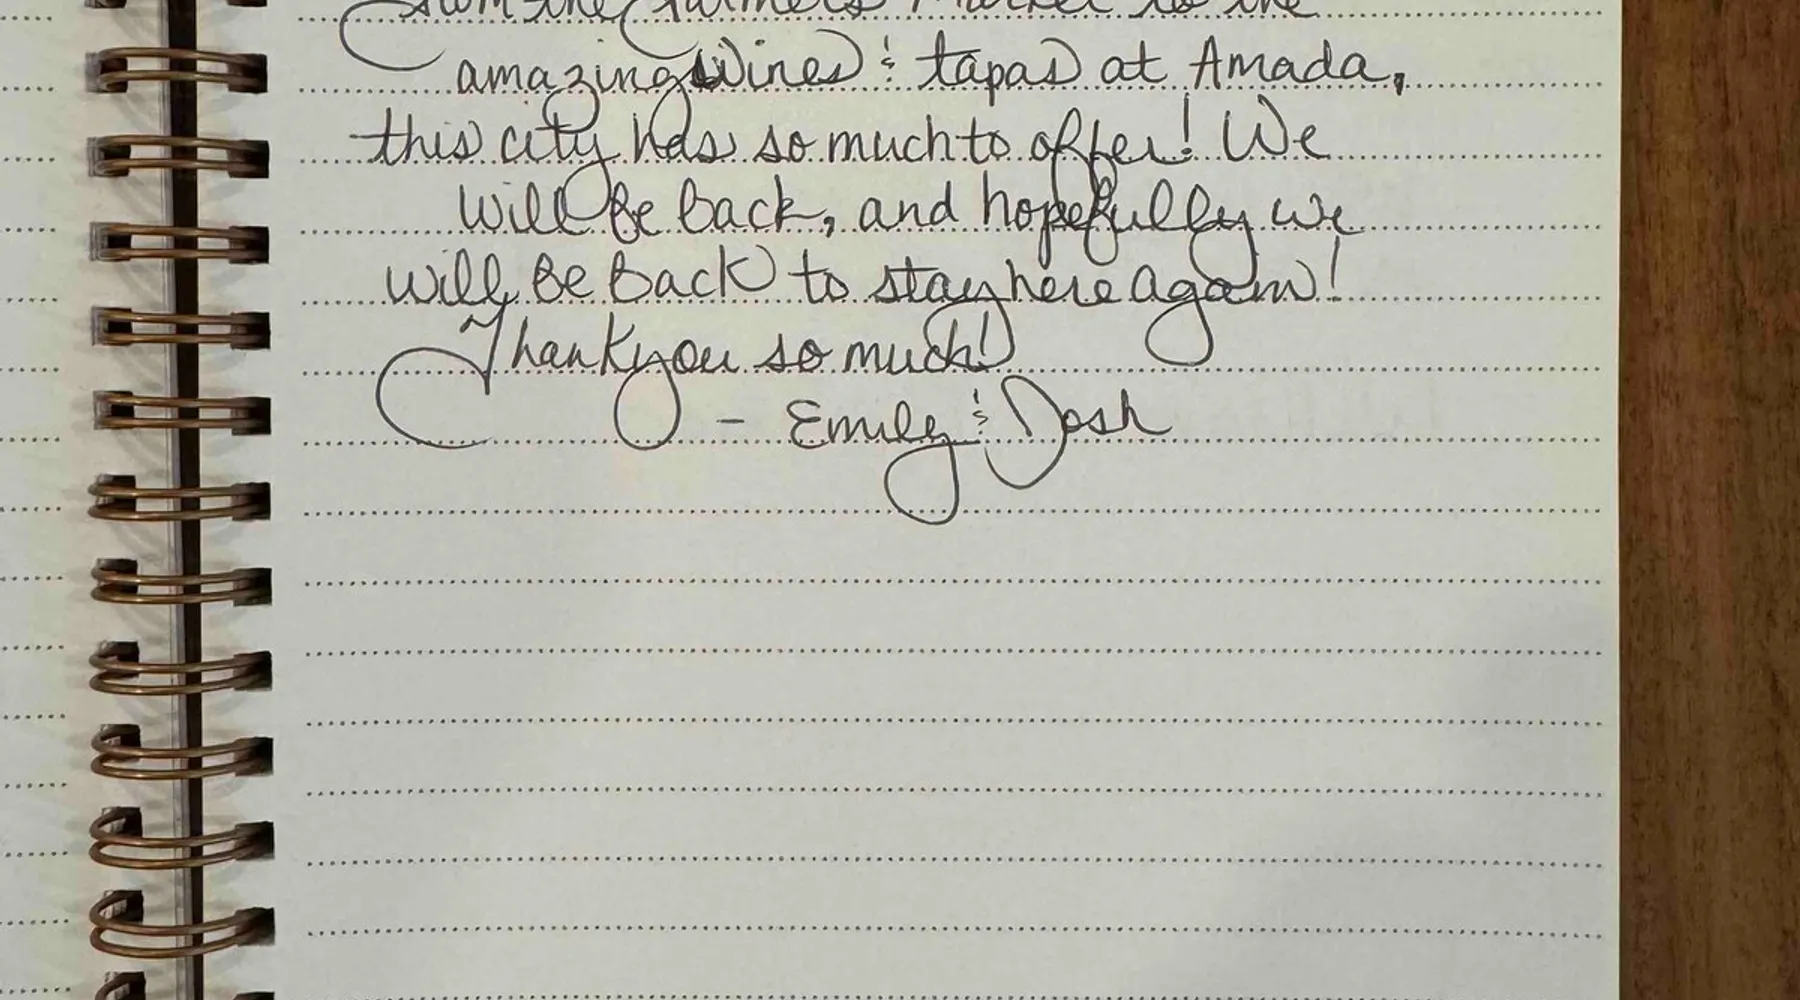 from the Farmers Market to the
amazing wines & tapas at Amada,
this city has so much to offer! We
will be back, and hopefully we
will be back to stay here again!
Thank you so much!
- Emily & Josh